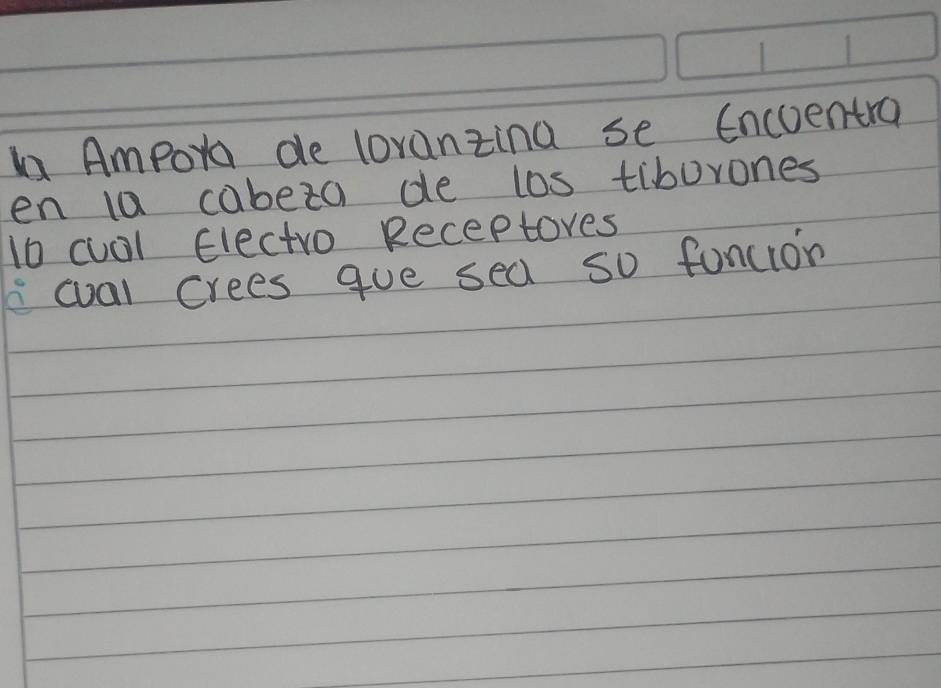 la Ampoya de loranzina se Encuentra
en la cabeza de los tiburones
lo cual Electro Receptores
¿ cual crees que sea su función